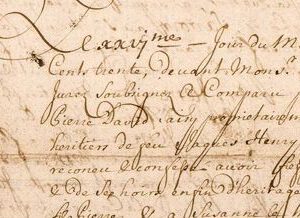 Le xxvj.me Jour du M
Cents trente, devant Mons.r
Jurez Soubsignez A Comparu
Pierre David propriétaire
heritiers de feu Jaques Henry
reconeu & confessé avoir
& de Ses hoirs enfin d'heritage
Pierre & a Susanne